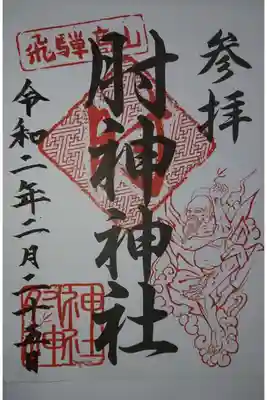 参拝
飛騨高山
肘神神社
令和二年二月二十五日